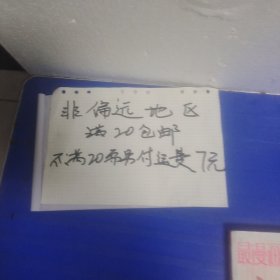 非偏远地区
满20包邮
不满20需另付运费7元
最慢